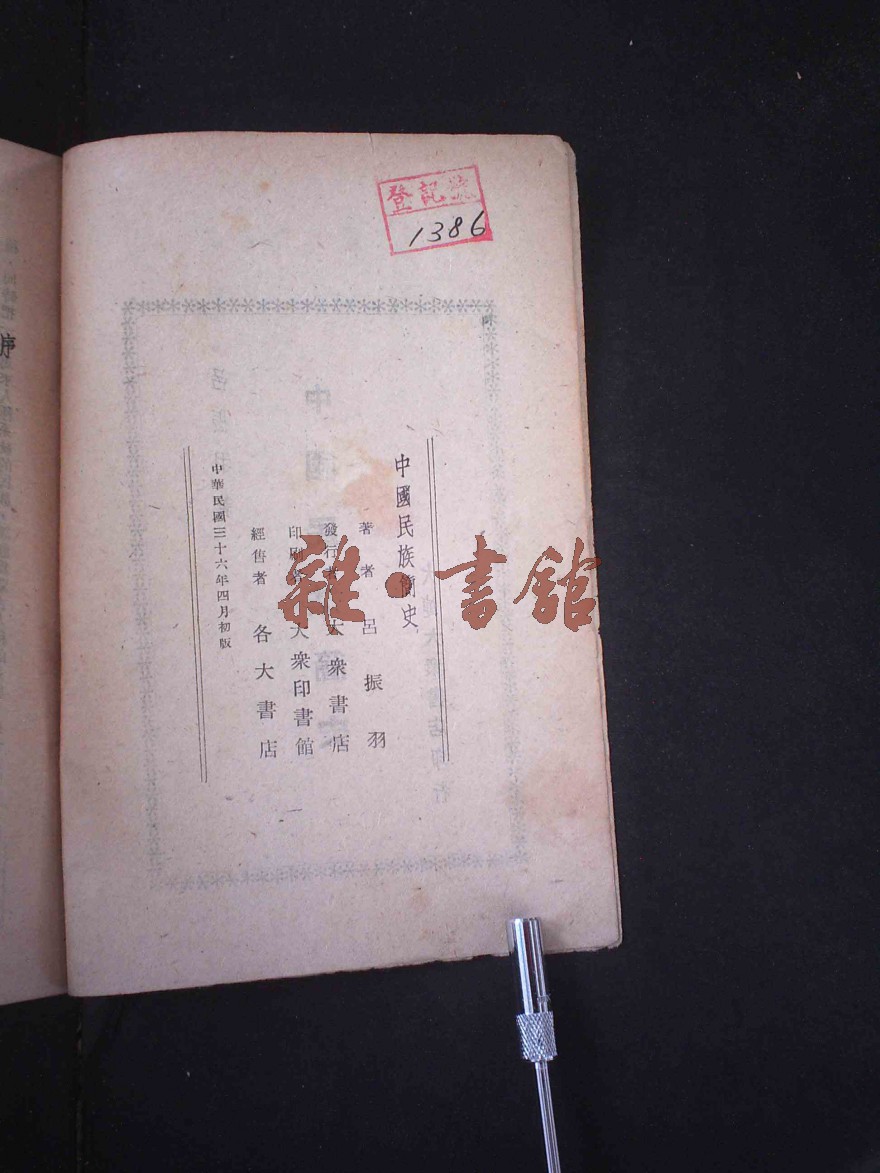 登記號
1386
中國民族簡史
著者 呂振羽
發行者 大衆書店
印刷者 大衆印書館
經售者 各大書店
中華民國三十六年四月初版
序
雜·書館